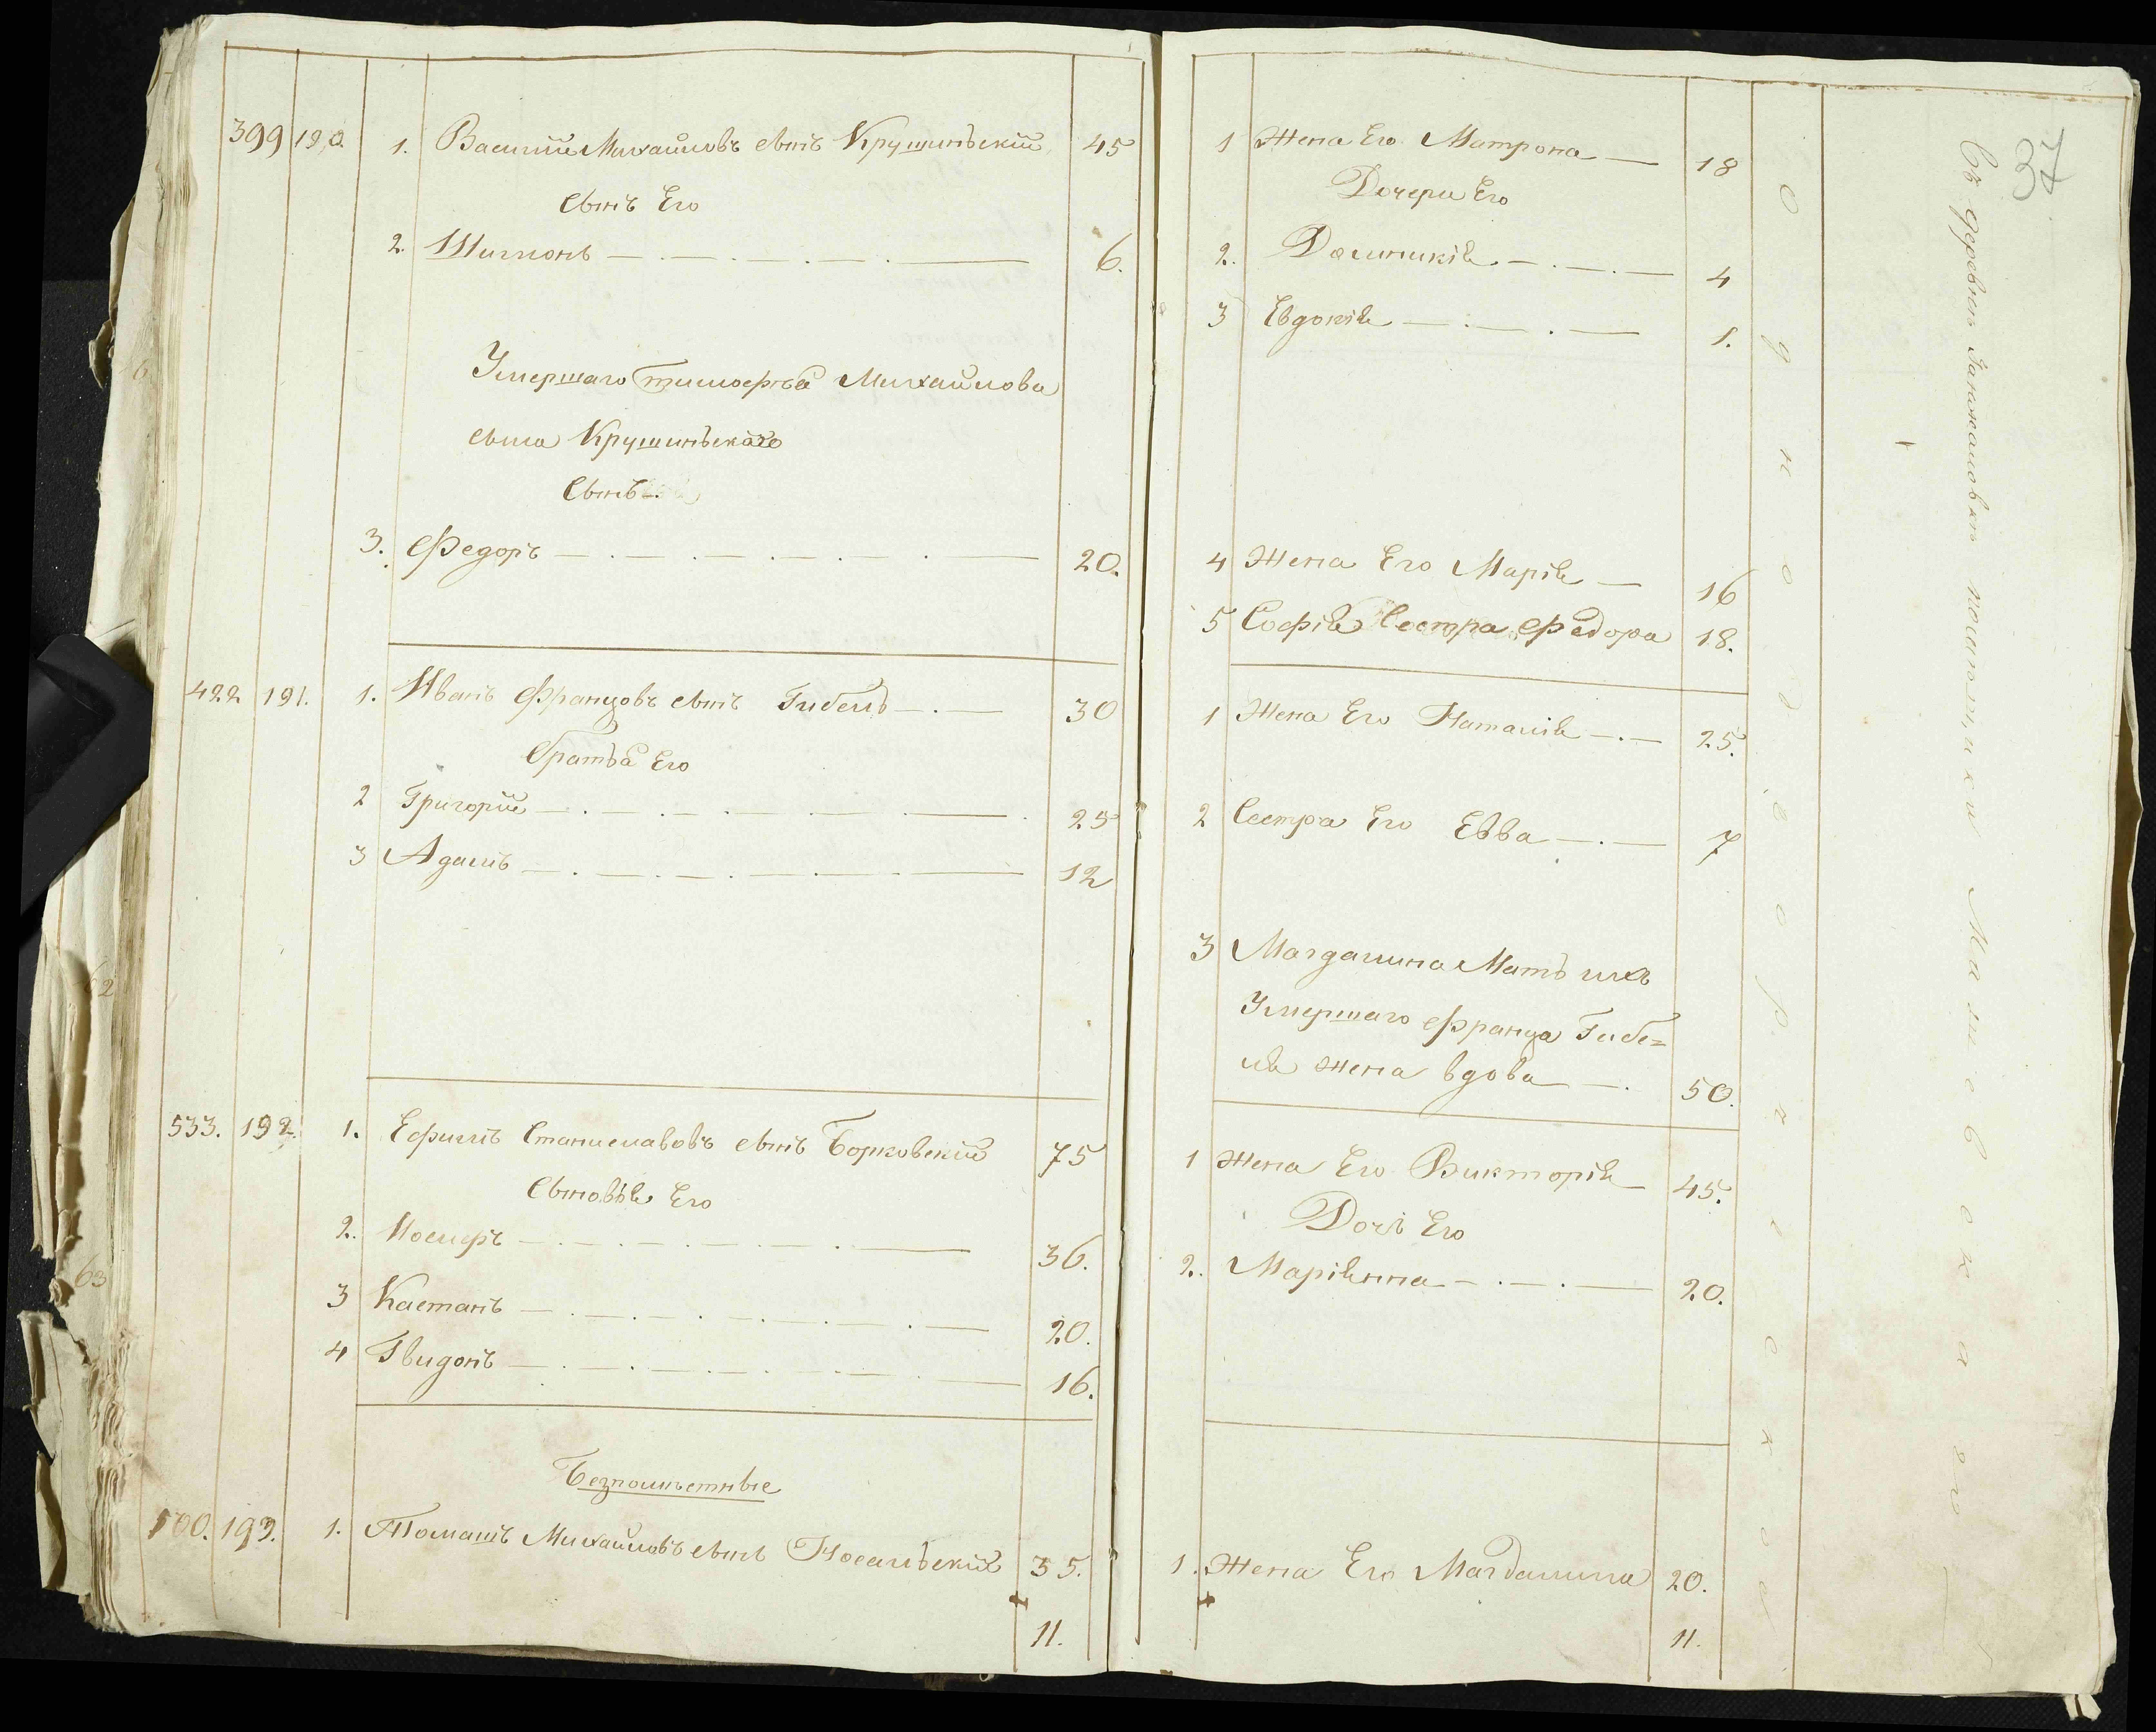 399 190. 1. Василий Михайловъ сынъ Крушиньский 45
сынъ Его
2. Шимонъ 6.
Умершаго Тимофея Михайлова
сына Крушиньскаго
сынъ
3. Федоръ 20.
422 191. 1. Иванъ Францовъ сынъ Гибель 30
братья Его
2 Григорий 25
3 Адамъ 12
533. 192. 1. Ефимъ Станиславовъ сынъ Борковский 75
сыновья Его
2. Иосифъ 36.
3 Кастанъ 20.
4 Гвидонъ 16.
Безпоместные
500. 193. 1. Томашъ Михайловъ сынъ Носальский 35.
11.
37
1 Жена Его Матрона 18
Дочери Его
2. Доминикія 4
3 Евдокія 1.
4 Жена Его Марія 16
5 Софія Сестра Федора 18.
1 Жена Его Наталія 25.
2 Сестра Его Евва 7
3 Магдалина Мать ихъ
Умершаго Франца Гибе=
ля жена вдова 50.
1 Жена Его Викторія 45.
Дочь Его
2. Маріянна 20.
1. Жена Его Магдалина 20.
11.
однодворческое
Въ деревне помещика